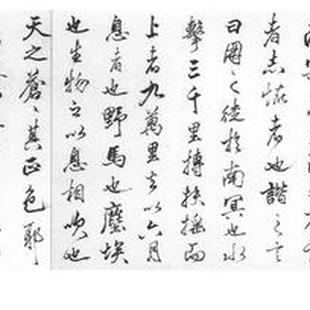 者志怪者也諧之言
曰鵬之徙於南冥也水
擊三千里摶扶搖而
上者九萬里去以六月
息者也野馬也塵埃
也生物之以息相吹也
天之蒼〻其正色耶